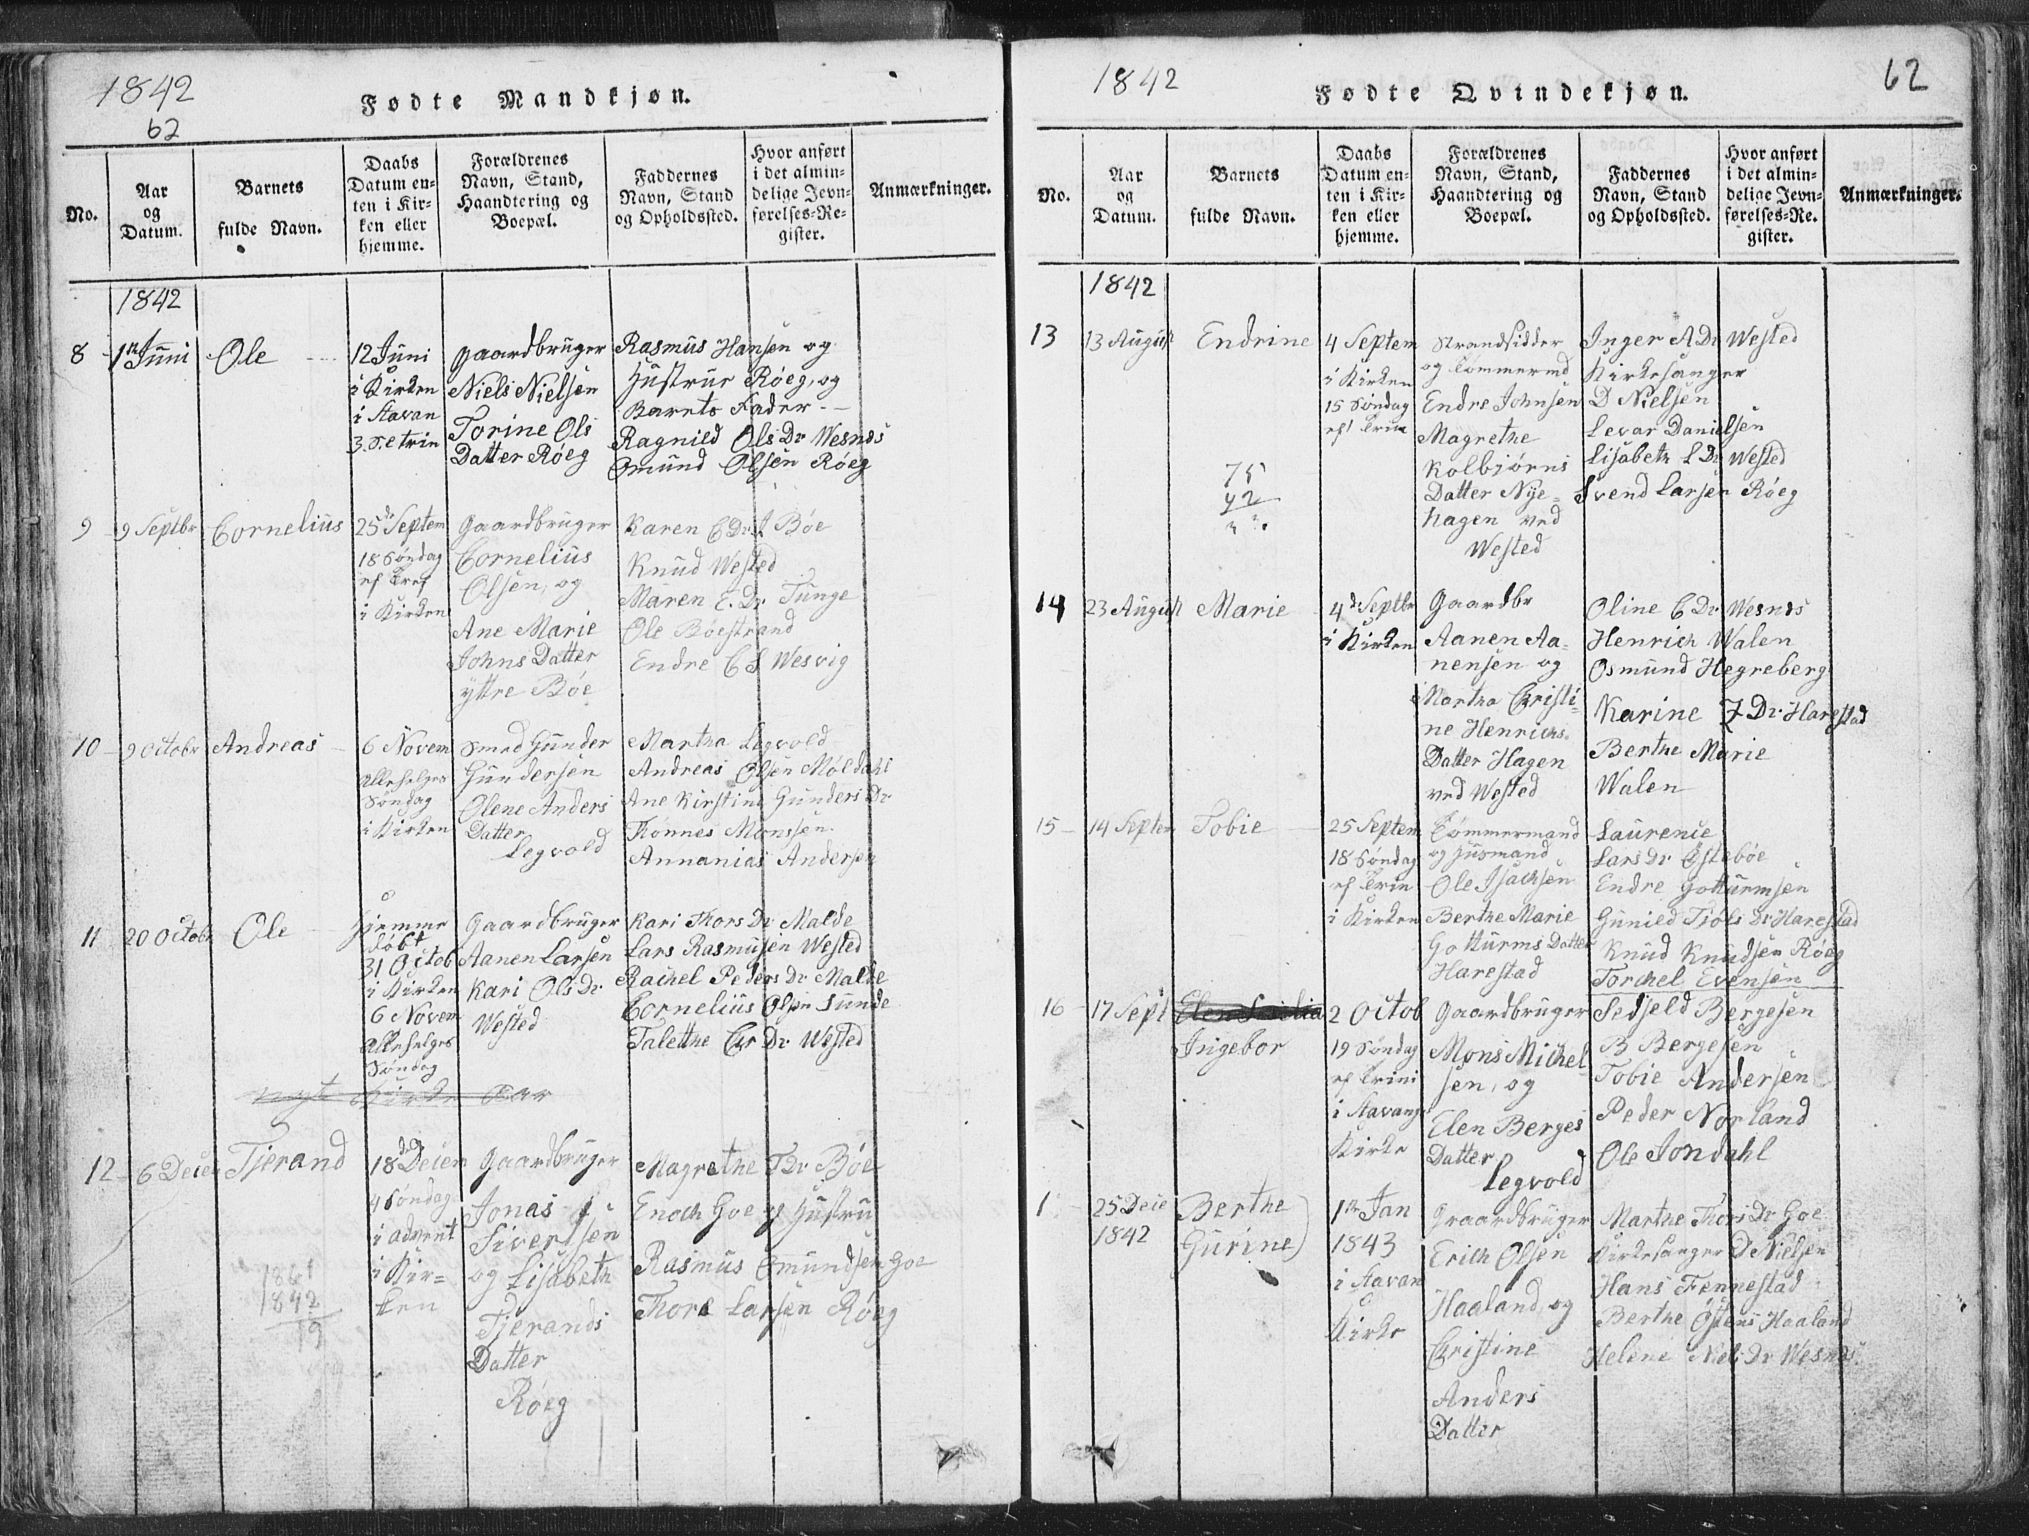 1842
62
Fødte Mandkjøn.
No.
Aar
og
Datum.
Barnets
fulde Navn.
Daabs
Datum en-
ten i Kir-
ken eller
hjemme.
Forældrenes
Navn, Stand,
Haandtering og
Boepæl.
Faddernes
Navn, Stand
og Opholdssted.
Hvor anført
i det almin-
delige Jevn-
førelses-Re-
gister.
Anmærkninger.
1842
8
1ste Juni
Ole
12 Juni
i Kirken
i Stavan
3 S. e trin
Gaardbruger
Niels Nielsen
Torine Ols
Datter Røeg
Rasmus Hansen og
Hustrue Røeg, og
Barnets Fader
Ragnild Ols Dr Wesnes
Omund Olsen Røeg
9
9 Septbr
Cornelius
25de Septem
18 Søndag
ef Tref
i Kirken
Gaardbruger
Cornelius
Olsen, og
Ane Marie
Johns Datter
yttre Bøe
Karen C Dr Bøe
Knud Wested
Maren E. Dr Tunge
Ole Bøestrand
Endre C S Wesvig
10
9 Octobr
Andreas
6 Novem
Allehelges
Søndag
i Kirken
Smed Gunder
Gundersen
Olene Anders
Datter
Legvold
Martha Legvold
Andreas Olsen Møldahl
Ane Kirstina Gunders Dr
Thønnes Monssen
Annanias Andersen
11
20 Octobr
Ole
Hjemme
døbt
31 Octob
i Kirken
6 Novem
Allehelges
Søndag
Gaardbruger
Aanen Larsen
Kari Ols Dr
Wested
Kari Thors Dr Malde
Lars Rasmusen Wested
Rachel Peders Dr Malde
Cornelius Olsen Sunde
Talethe Chr Dr Wested
nyt Kirke Aar
12
6 Decem
Tjerand
18de Decem
4 Søndag
i advent
i Kir=
ken
Gaardbruger
Jonas
Sivertsen
og Lisabeth
Tjerands
Datter
Røeg
Magrethe T Dr Bøe
Enoch Goe og Hustru
Rasmus Omundsen Goe
Thore Larsen Røeg
1861
1842
19
1842
62
Fødte Qvindekjøn.
No.
Aar
og
Datum.
Barnets
fulde Navn.
Daabs
Datum en-
ten i Kir-
ken eller
hjemme.
Forældrenes
Navn, Stand,
Haandtering og
Boepæl.
Faddernes
Navn, Stand
og Opholdssted.
Hvor anført
i det almin-
delige Jevn-
førelses-Re-
gister.
Anmærkninger.
1842
13
13 August
Endrine
75
42
4 Septem
i Kirken
15 Søndag
ef Trin
Strandsidder
og Tømmermd
Endre Johnsen
Magrethe
Kolbjørns
Datter Nye=
hagen ved
Wested
Inger A Dr Wested
Kirkesanger
D Nielsen
Levar Danielsen
Lisabeth L Dr Wested
Svend Larsen Røeg
14
23 August
Marie
4de Septbr
i Kirken
Gaardbr
Aanen Aa-
nensen og
Martha Christi-
ne Henrichs
Datter Hagen
ved Wested
Oline C Dr Wesnes
Henrich Walen
Osmund Hegreberg
Karine J Dr Harestad
Berthe Marie
Walen
15
14 Septem
Tobie
25 Septem
18 Søndag
ef Trin
i Kirken
Tømmermand
og Husmand
Ole Isachsen
Berthe Marie
Gotturms Datter
Harestad
Laurence
Lars Dr Østebøe
Endre Gotturmsen
Gunild Tjøls Dr Harestad
Knud Knudsen Røeg
Torchel Evensen
16
17 Sept
Ingebor
2 Octob
19 Søndag
ef Trini
i Stavang
Kirke
Gaardbruger
Mons Michel-
sen, og
Elen Berges
Datter
Legvold
Sedseld Bergesen
B Bergesen
Tobie Andersen
Peder Norland
Ole Jondahl
1
25 Dece
1842
Berthe
Gurine
1ste Jan
1843
i Stavan
Kirke
Graardbruger
Erich Olsen
Haaland, og
Christine
Anders
Datter
Marthe Thors Dr Goe
Kirkesanger D Nielsen
Hans Fennestad
Berthe Østens Haaland
Helene Niels Dr Wesnes